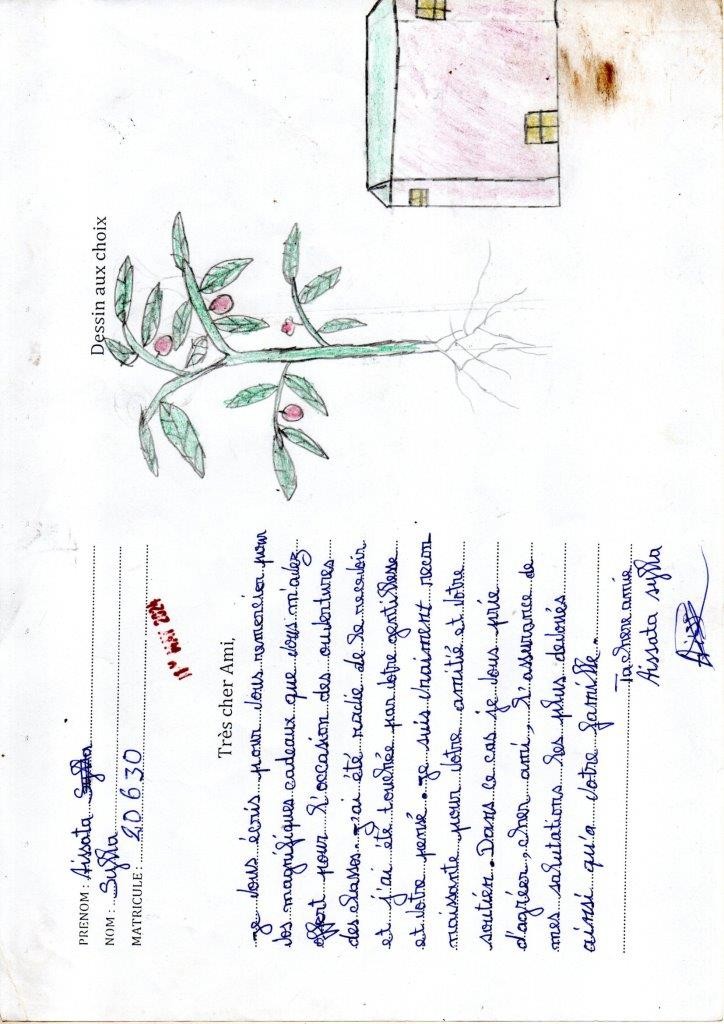 PRENOM : Aissata Sylla
NOM : Sylla
MATRICULE : 20630
MAI 2024
Très cher Ami,
je vous écris pour vous remercier pour
vos magnifiques cadeaux que vous m'avez
offert pour l'occasion des ouvertures
des classes. j'ai été ravie de le recevoir
et j'ai été touchée par votre gentillesse
et votre pensé. je suis vraiment recon
naissante pour votre amitié et votre
soutien. Dans ce cas je vous prie
d'agréer, cher ami, l'assurance de
mes salutations les plus dévoués
ainsi qu'a votre famille.
Ta chere amie
Aissata Sylla
Dessin aux choix